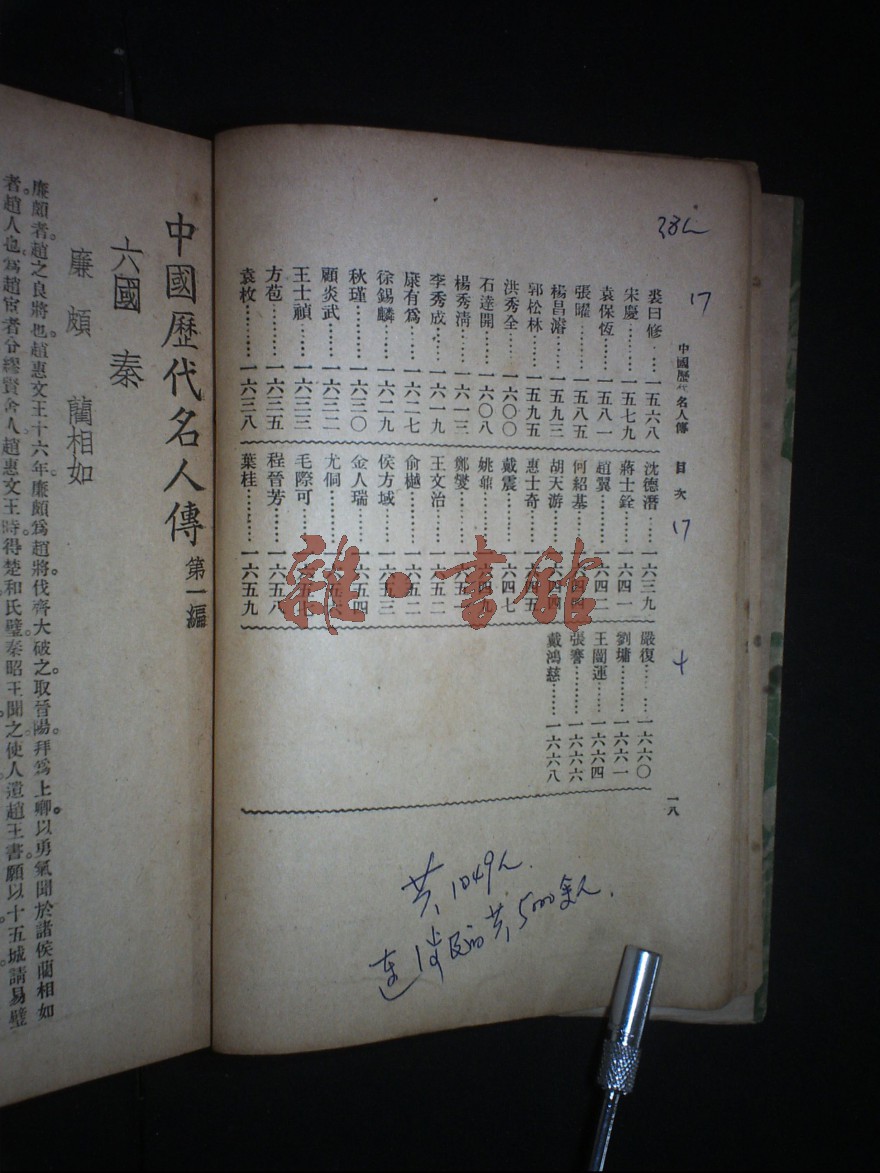 38人
17
中國歷代名人傳 目次
17
4
一八
裘曰修....一五六八
宋慶......一五七九
袁保恆....一五八一
張曜......一五八五
楊昌濬....一五九三
郭松林....一五九五
洪秀全....一六〇〇
石達開....一六〇八
楊秀清....一六一三
李秀成....一六一九
康有爲....一六二七
徐錫麟....一六二九
秋瑾......一六三〇
顧炎武....一六三二
王士禎....一六三三
方苞......一六三五
袁枚......一六三八
沈德潛....一六三九
蔣士銓....一六四一
趙翼......一六四二
何紹基....一六四四
胡天游....一六四四
惠士奇....一六四五
戴震......一六四七
姚鼐......一六四九
鄭燮......一六五一
王文治....一六五二
俞樾......一六五二
侯方域....一六五三
金人瑞....一六五四
尤侗......一六五六
毛際可....一六五七
程晉芳....一六五八
葉桂......一六五九
嚴復......一六六〇
劉墉......一六六一
王闓運....一六六四
張謇......一六六六
戴鴻慈....一六六八
共1049人
連附及的共5000余人.
雜·書館
中國歷代名人傳 第一編
六國 秦
廉頗 藺相如
廉頗者。趙之良將也。趙惠文王十六年。廉頗爲趙將。伐齊。大破之。取晉陽。拜爲上卿。以勇氣聞於諸侯。藺相如
者。趙人也。爲趙宦者令繆賢舍人。趙惠文王時。得楚和氏璧。秦昭王聞之。使人遺趙王書。願以十五城請易璧。